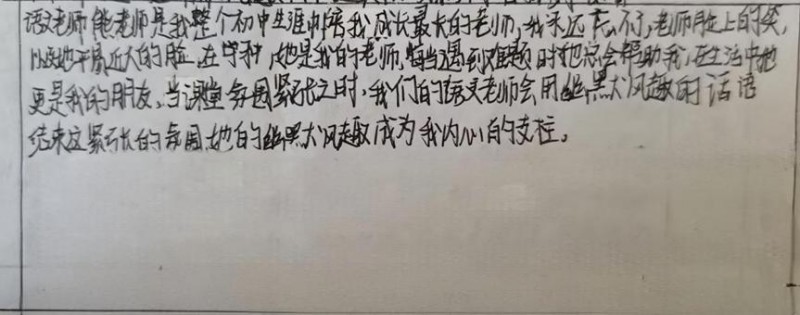 语文老师熊老师是我整个初中生涯中陪我成长最长的老师,我永远忘不了,老师脸上的笑,
以及她平易近人的脸,在学校她是我的老师,每当遇到难题时她总会帮助我,在生活中她
更是我的朋友。当课堂氛围紧张之时,我们的语文老师会用幽默风趣的话语
结束这紧张的氛围,她的幽默风趣成为我内心的支柱。